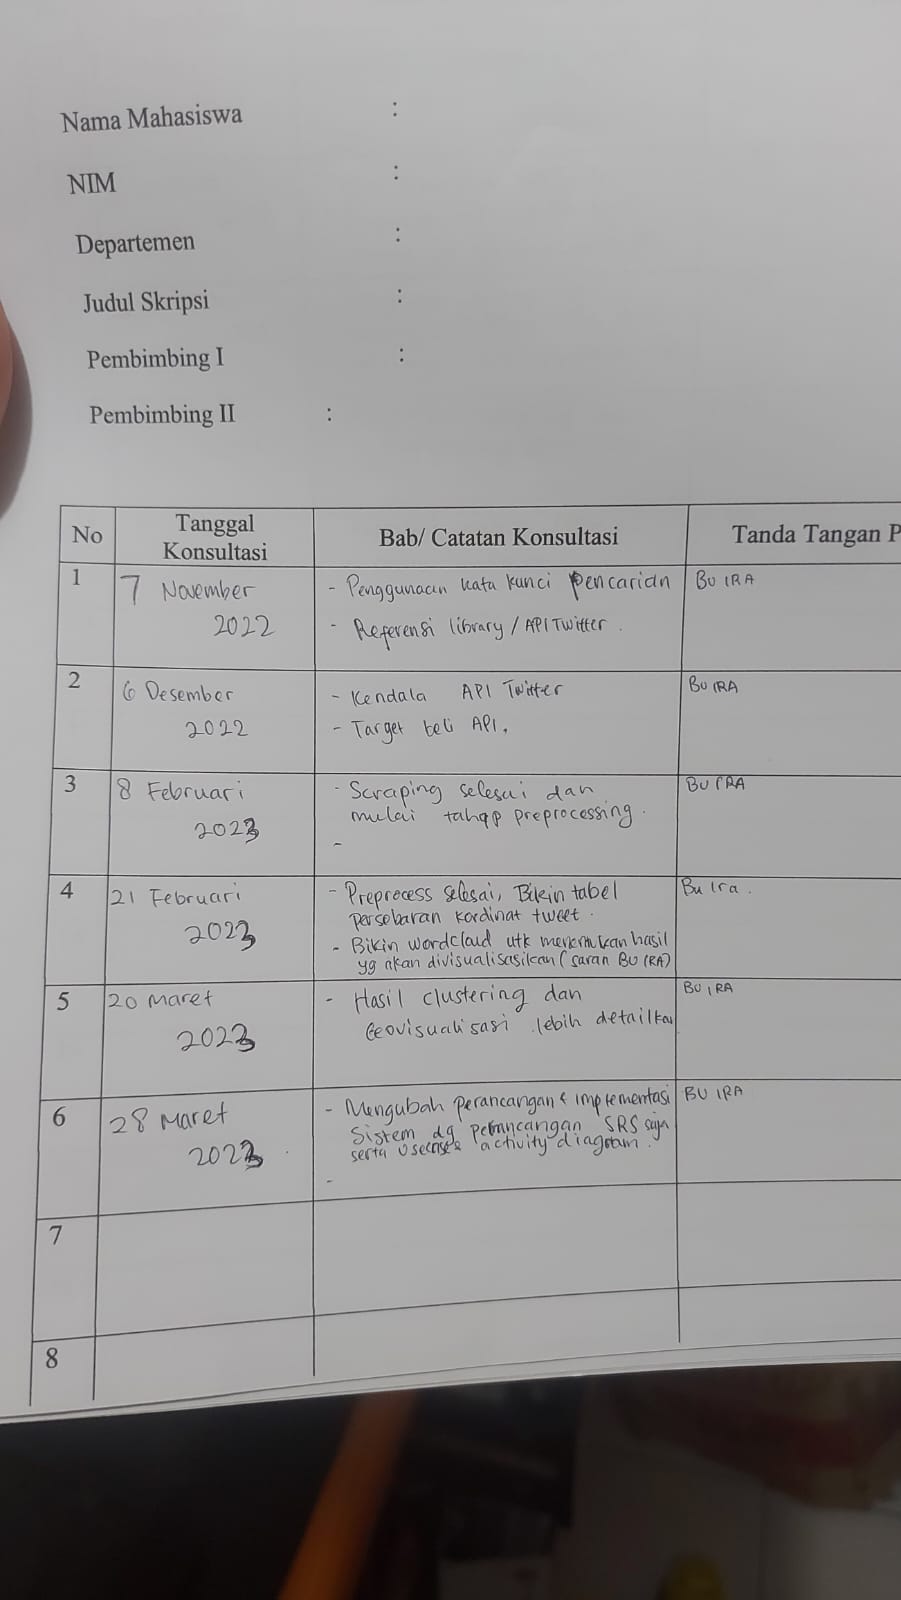 Nama Mahasiswa :
NIM :
Departemen :
Judul Skripsi :
Pembimbing I :
Pembimbing II :
No
Tanggal
Konsultasi
Bab/ Catatan Konsultasi
Tanda Tangan P
1
7 November
2022
- Penggunaan kata kunci pencarian
- Referensi library / API Twitter.
BU IRA
2
6 Desember
2022
- Kendala API Twitter
- Target beli API.
BU IRA
3
8 Februari
2023
- Scraping selesai dan
mulai tahap preprocessing.
-
BU IRA
4
21 Februari
2023
- Preprocess selesai, Bikin tabel
persebaran kordinat tweet.
- Bikin wordcloud utk menemukan hasil
yg akan divisualisasikan (saran BU IRA)
Bu Ira.
5
20 Maret
2023
- Hasil clustering dan
Geovisualisasi lebih detailkan
BU IRA
6
28 Maret
2023
- Mengubah perancangan & implementasi
Sistem dg perancangan SRS saja
serta Usecase & activity diagram.
-
BU IRA
7
8